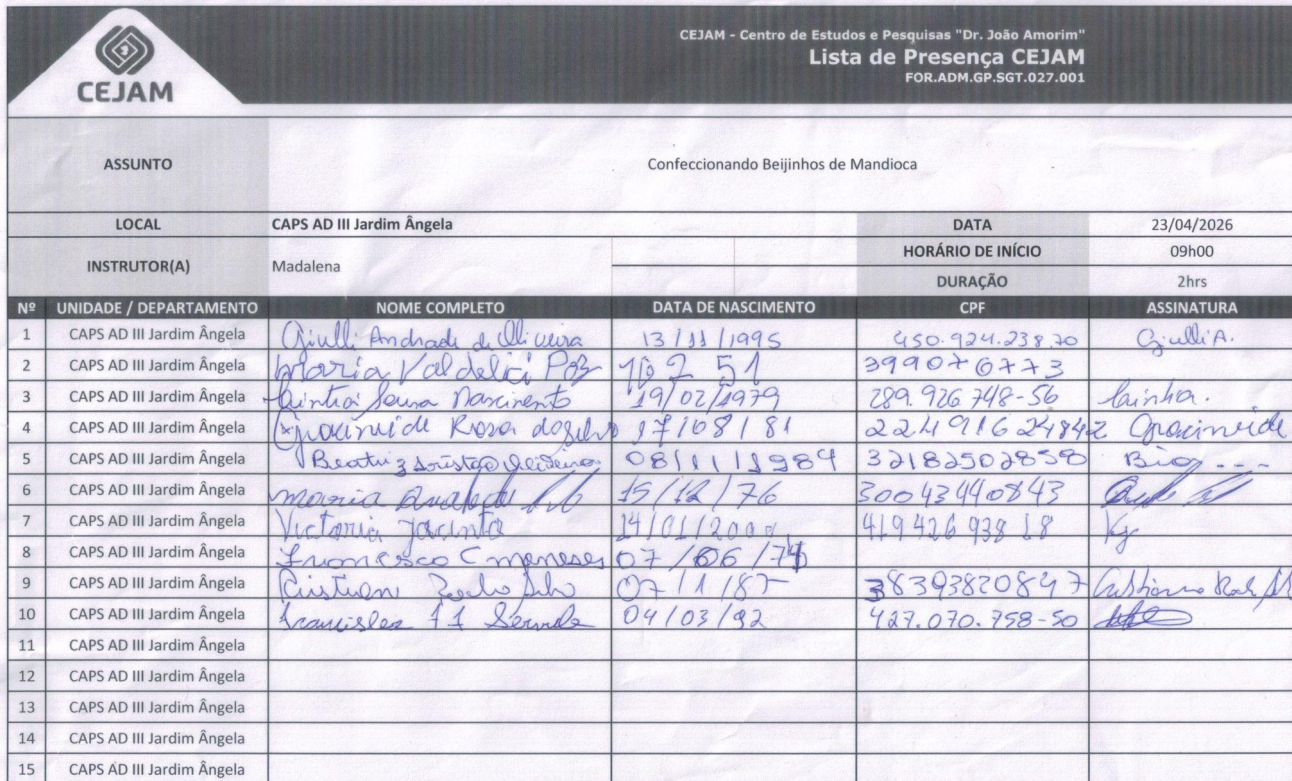 CEJAM
CEJAM - Centro de Estudos e Pesquisas "Dr. João Amorim"
Lista de Presença CEJAM
FOR.ADM.GP.SGT.027.001
ASSUNTO Confeccionando Beijinhos de Mandioca
LOCAL CAPS AD III Jardim Ângela DATA 23/04/2026
INSTRUTOR(A) Madalena HORÁRIO DE INÍCIO 09h00
DURAÇÃO 2hrs
Nº UNIDADE / DEPARTAMENTO NOME COMPLETO DATA DE NASCIMENTO CPF ASSINATURA
1 CAPS AD III Jardim Ângela Giulli Andrade de Oliveira 13/11/1995 450.924.238.70 Giulli A.
2 CAPS AD III Jardim Ângela Maria Valdelici 51 399076773
3 CAPS AD III Jardim Ângela Cintia Sousa Nascimento 19/02/1979 289.926.748-56
4 CAPS AD III Jardim Ângela Rosa 17/08/81
5 CAPS AD III Jardim Ângela Beatriz 32182502858
6 CAPS AD III Jardim Ângela Maria 15/12/76 30043440843
7 CAPS AD III Jardim Ângela Victoria Jacinto 14/01/2000 419426938 18
8 CAPS AD III Jardim Ângela Francisco C meneses 07/06/74
9 CAPS AD III Jardim Ângela 07/1/87 38393820847
10 CAPS AD III Jardim Ângela 04/03/92 427.070.758-50
11 CAPS AD III Jardim Ângela
12 CAPS AD III Jardim Ângela
13 CAPS AD III Jardim Ângela
14 CAPS AD III Jardim Ângela
15 CAPS AD III Jardim Ângela